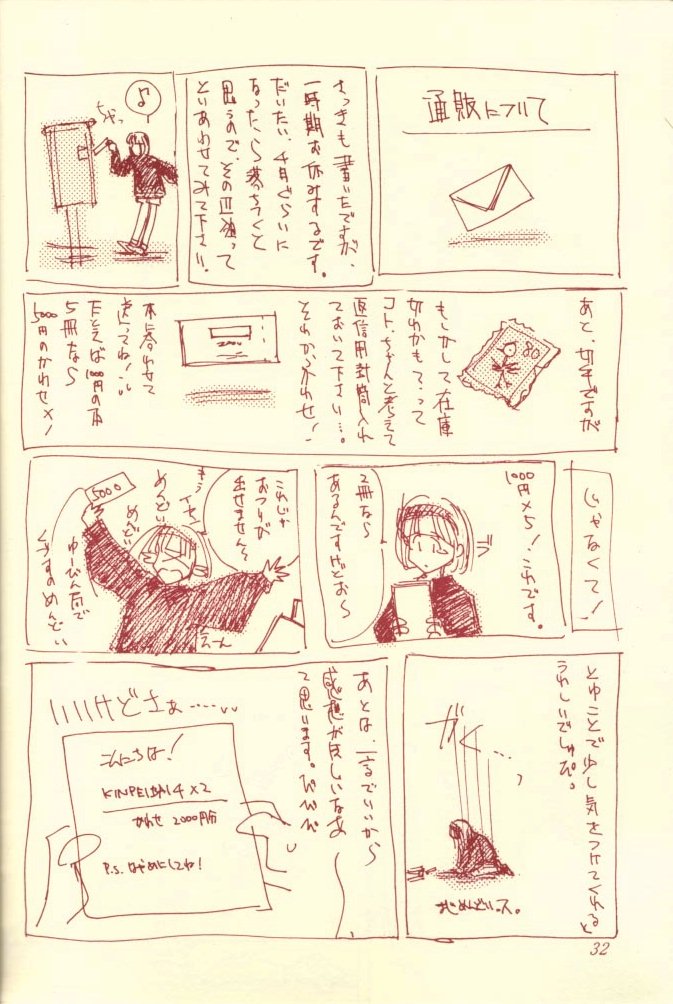 通販について
さっきも書いたですが、
一時期お休みするです。
だいたい、4月ぐらいに
なったら落ちつくと
思うので、その辺狙って
といあわせてみて下さい。
♪
ちゃっ
あと、切手ですが
80
もしかして在庫
切れかも？って
コト、ちゃんと考えて
返信用封筒入れ
ておいて下さい…。
それか、かわせ！
本に合わせて
送ってね！
たとえば1000円の本
5冊なら
5000円のかわせ×1
じゃなくて！
1000円×5！これです。
2冊なら
あるんですけどお〜
これじゃ
おつりが
出せません〜
5000
めんどい
めんどい
ゆーびん局で
くずすのめんどい
えーん
とゆことで少し気をつけてくれると
うれしいでしゅぴ。
がく…
めんどいっス。
あとは、一言でいいから
感想が欲しいなあ
て思います。ぴぴぴ
いいけどさぁ……
こんにちは！
×2
かわせ 2000円分
P.S. はやめにしてね！
32